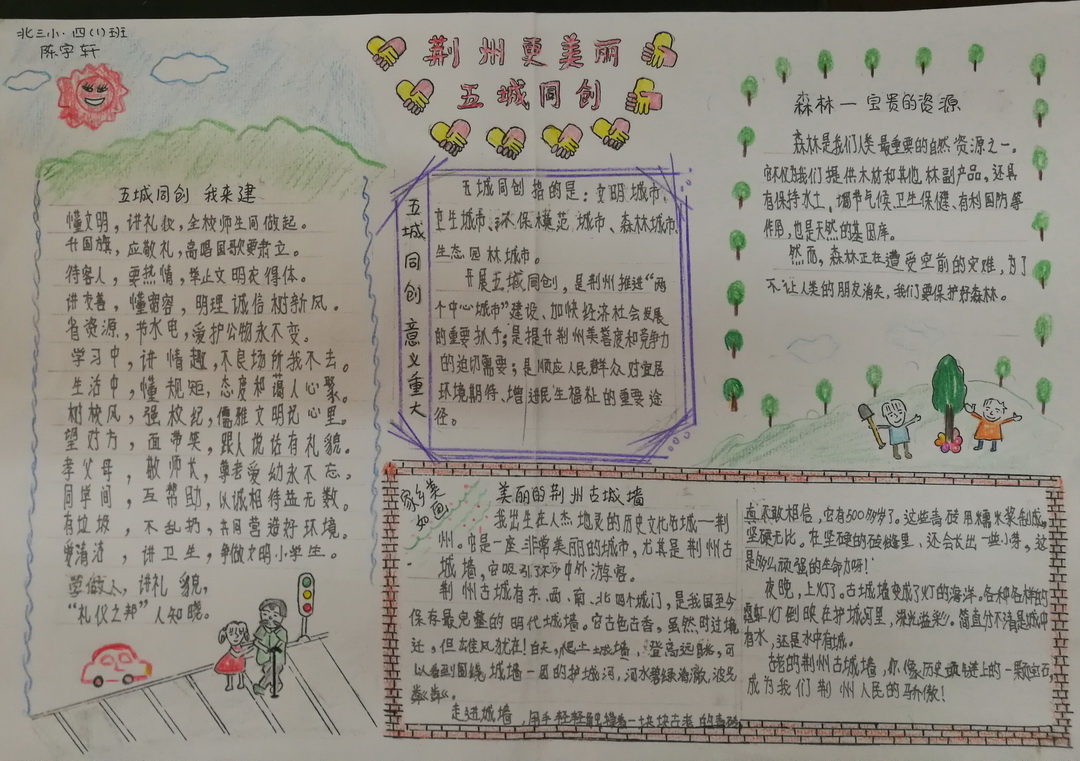 北三小·四(1)班
陈宇轩
荆州更美丽
五城同创
五城同创 我来建
懂文明，讲礼仪，全校师生同做起。
升国旗，应敬礼，高唱国歌要肃立。
待客人，要热情，举止文明衣得体。
讲友善，懂宽容，明理诚信树新风。
省资源，节水电，爱护公物永不变。
学习中，讲情趣，不良场所我不去。
生活中，懂规矩，态度和蔼人心聚。
树校风，强校纪，儒雅文明记心里。
望对方，面带笑，跟人说话有礼貌。
孝父母，敬师长，尊老爱幼永不忘。
同学间，互帮助，以诚相待益无数。
有垃圾，不乱扔，共同营造好环境。
爱清洁，讲卫生，争做文明小学生。
学做人，讲礼貌，
“礼仪之邦”人知晓。
五城同创 意义重大
五城同创指的是：文明城市、
卫生城市、环保模范城市、森林城市、
生态园林城市。
开展五城同创，是荆州推进“两
个中心城市”建设、加快经济社会发展
的重要抓手；是提升荆州美誉度和竞争力
的迫切需要；是顺应人民群众对宜居
环境期待、增进民生福祉的重要途
径。
森林—宝贵的资源
森林是我们人类最重要的自然资源之一。
它不仅为我们提供木材和其他林副产品，还具
有保持水土、调节气候、卫生保健、有利国防等
作用，也是天然的基因库。
然而，森林正在遭受空前的灾难，为了
不让人类的朋友消失，我们要保护好森林。
家乡美
如画
美丽的荆州古城墙
我出生在人杰地灵的历史文化名城——荆
州。它是一座非常美丽的城市，尤其是荆州古
城墙，它吸引了不少中外游客。
荆州古城有东、西、南、北四个城门，是我国至今
保存最完整的明代城墙。它古色古香，虽然时过境
迁，但雄风犹在！白天，爬上城墙，登高远眺，可
以看到围绕城墙一周的护城河，河水碧绿清澈，波光
粼粼。
走进城墙，用手轻轻触摸着一块块古老的青砖
真不敢相信，它有500多岁了。这些青砖用糯米浆制成，
坚硬无比。在坚硬的砖缝里，还会长出一些小芽，这
是多么顽强的生命力呀！
夜晚，上灯了。古城墙变成了灯的海洋。各种各样的
霓虹灯倒映在护城河里，流光溢彩。简直分不清是城中
有水，还是水中有城。
古老的荆州古城墙，你像历史项链上的一颗宝石
成为我们荆州人民的骄傲！